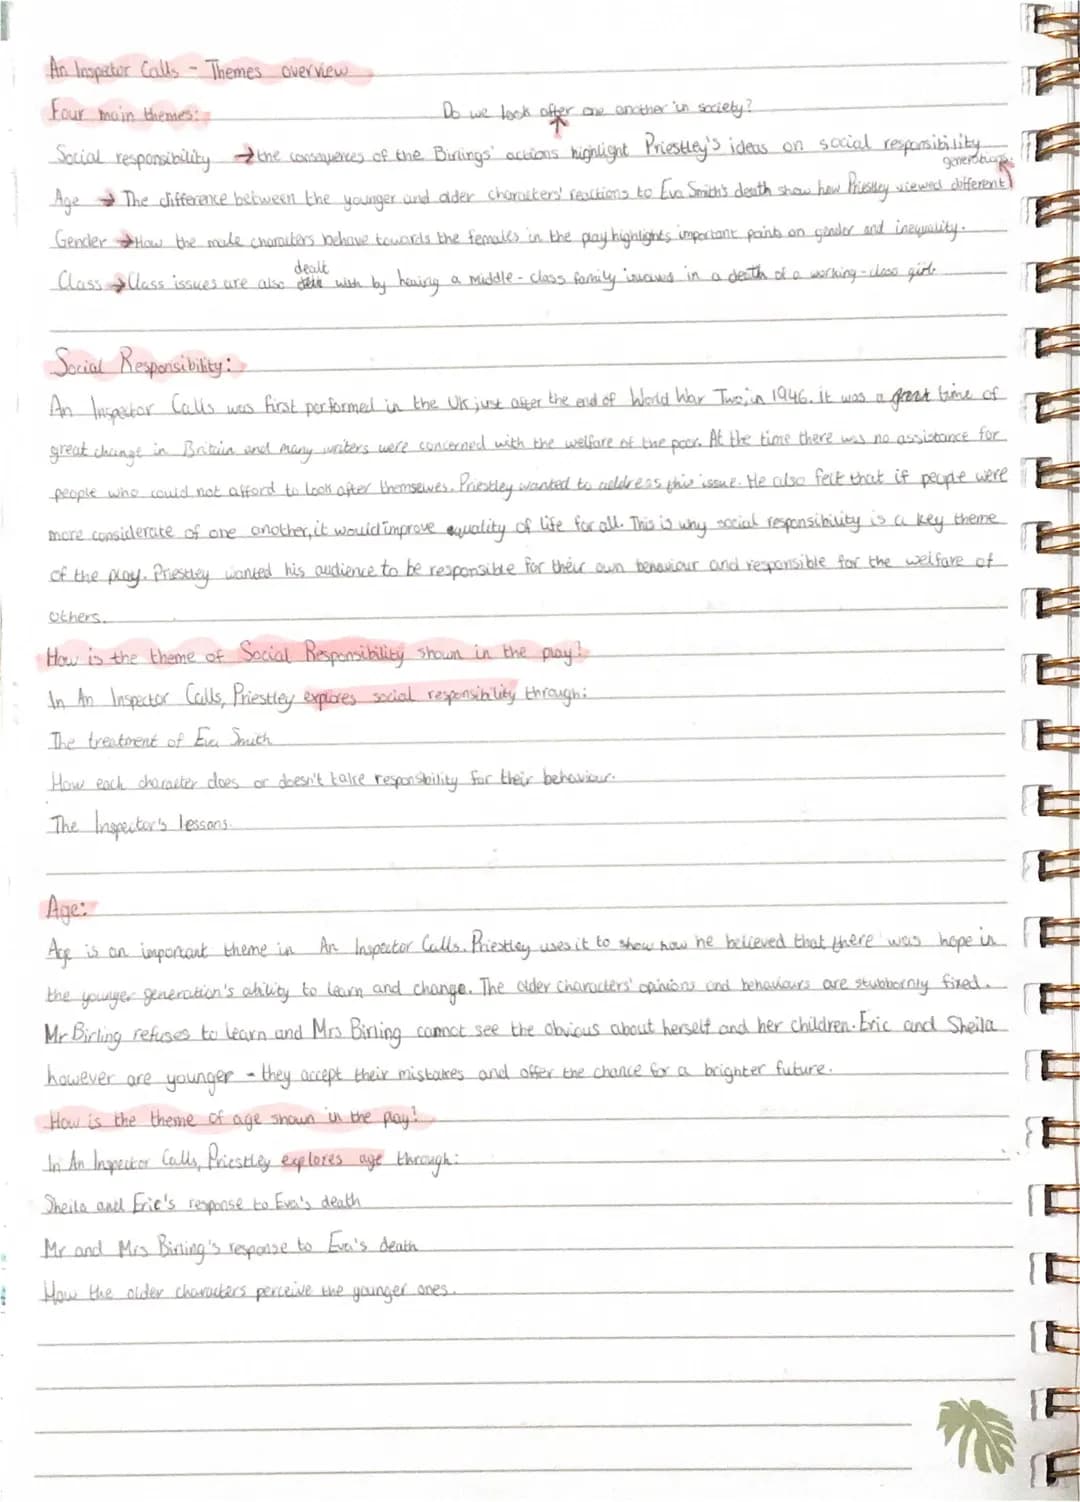 An Inspector Calls - Themes overview
Four main themes:
Do we look after one another in society?
Social responsibility → the consequences of the Birlings' actions highlight Priestley's ideas on social responsibility
generations.
Age → The difference between the younger and older characters' reactions to Eva Smith's death show how Priestley viewed different
Gender → How the male characters behave towards the females in the play highlights important points on gender and inequality.
dealt
Class → Class issues are also with by having a middle-class family involved in a death of a working-class girl.
Social Responsibility:
An Inspector Calls was first performed in the UK just after the end of World War Two, in 1946. It was a great time of
great change in Britain and many writers were concerned with the welfare of the poor. At the time there was no assistance for
people who could not afford to look after themselves. Priestley wanted to address this issue. He also felt that if people were
more considerate of one another, it would improve equality of life for all. This is why social responsibility is a key theme
of the play. Priestley wanted his audience to be responsible for their own behaviour and responsible for the welfare of
others.
How is the theme of Social Responsibility shown in the play?
In An Inspector Calls, Priestley explores social responsibility through:
The treatment of Eva Smith
How each character does or doesn't take responsibility for their behaviour.
The Inspector's lessons.
Age:
Age is an important theme in An Inspector Calls. Priestley uses it to show how he believed that there was hope in
the younger generation's ability to learn and change. The older characters' opinions and behaviours are stubbornly fixed.
Mr Birling refuses to learn and Mrs Birling cannot see the obvious about herself and her children. Eric and Sheila
however are younger - they accept their mistakes and offer the chance for a brighter future.
How is the theme of age shown in the play?
In An Inspector Calls, Priestley explores age through:
Sheila and Eric's response to Eva's death
Mr and Mrs Birling's response to Eva's death
How the older characters perceive the younger ones.